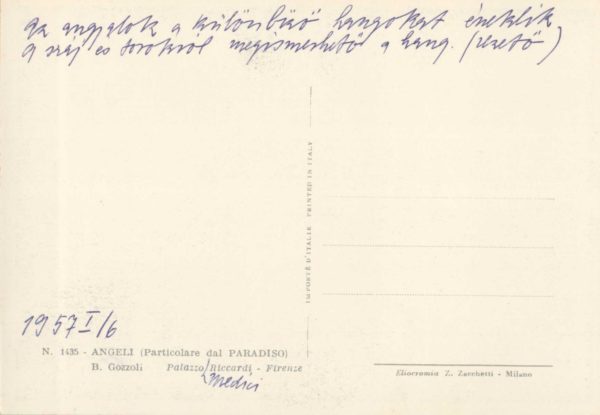 Az angyalok a különböző hangokat éneklik,
a száj és torokról megismerhető a hang. (vezető)
IMPORTÉ D'ITALIE PRINTED IN ITALY
1957 I/6
N. 1435 - ANGELI (Particolare dal PARADISO)
B. Gozzoli Palazzo / Riccardi - Firenze
Medici
Eliocromia Z. Zacchetti - Milano